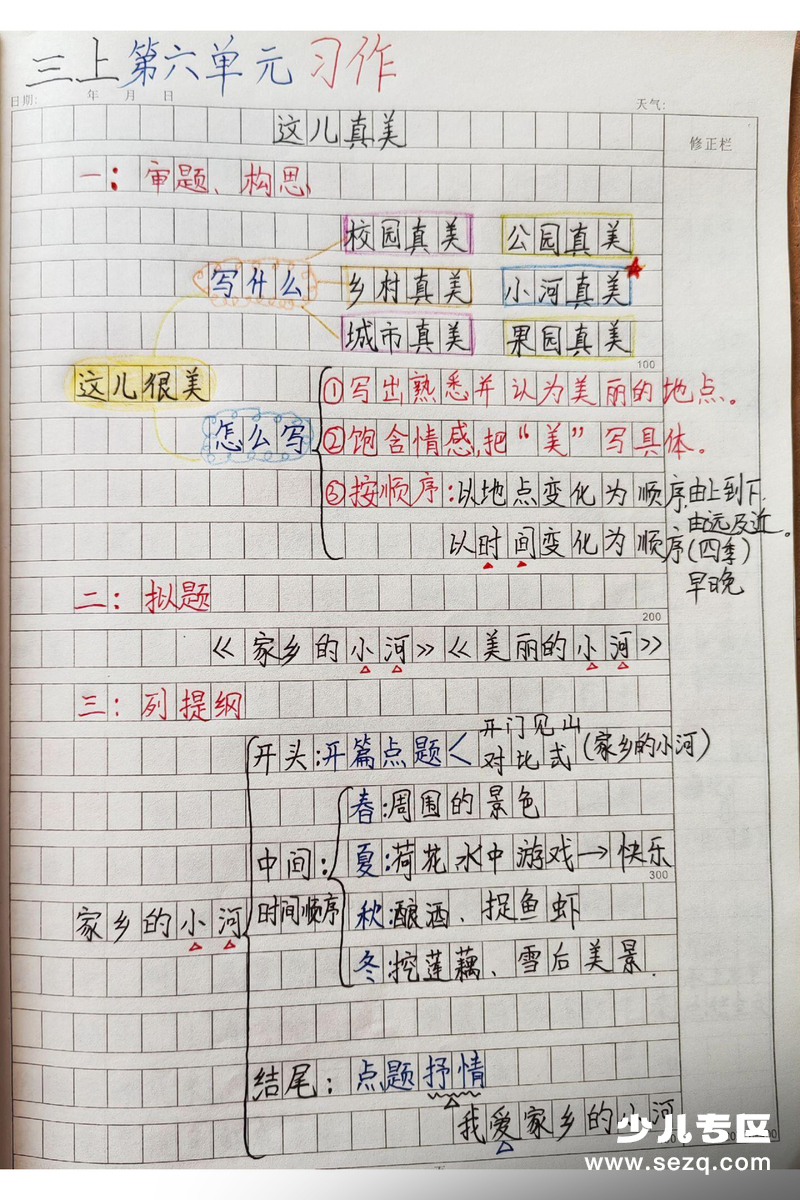 三上第六单元习作
日期: 年 月 日 天气:
这儿真美
修正栏
一:审题、构思
校园真美 公园真美
写什么 乡村真美 小河真美
城市真美 果园真美
100
这儿很美 ①写出熟悉并认为美丽的地点。
怎么写 ②饱含情感,把“美”写具体。
③按顺序:以地点变化为顺序,由上到下,
由远及近。
以时间变化为顺序(四季)
早日晚
二:拟题
200
《家乡的小河》《美丽的小河》
三:列提纲
开头:开篇点题<开门见山
对比式(家乡的小河)
春:周围的景色
中间: 夏:荷花水中游戏→快乐
300
家乡的小河 时间顺序 秋:酿酒、捉鱼虾
冬:挖莲藕、雪后美景.
结尾:点题抒情
我爱家乡的小河
少儿专区
www.sezq.com